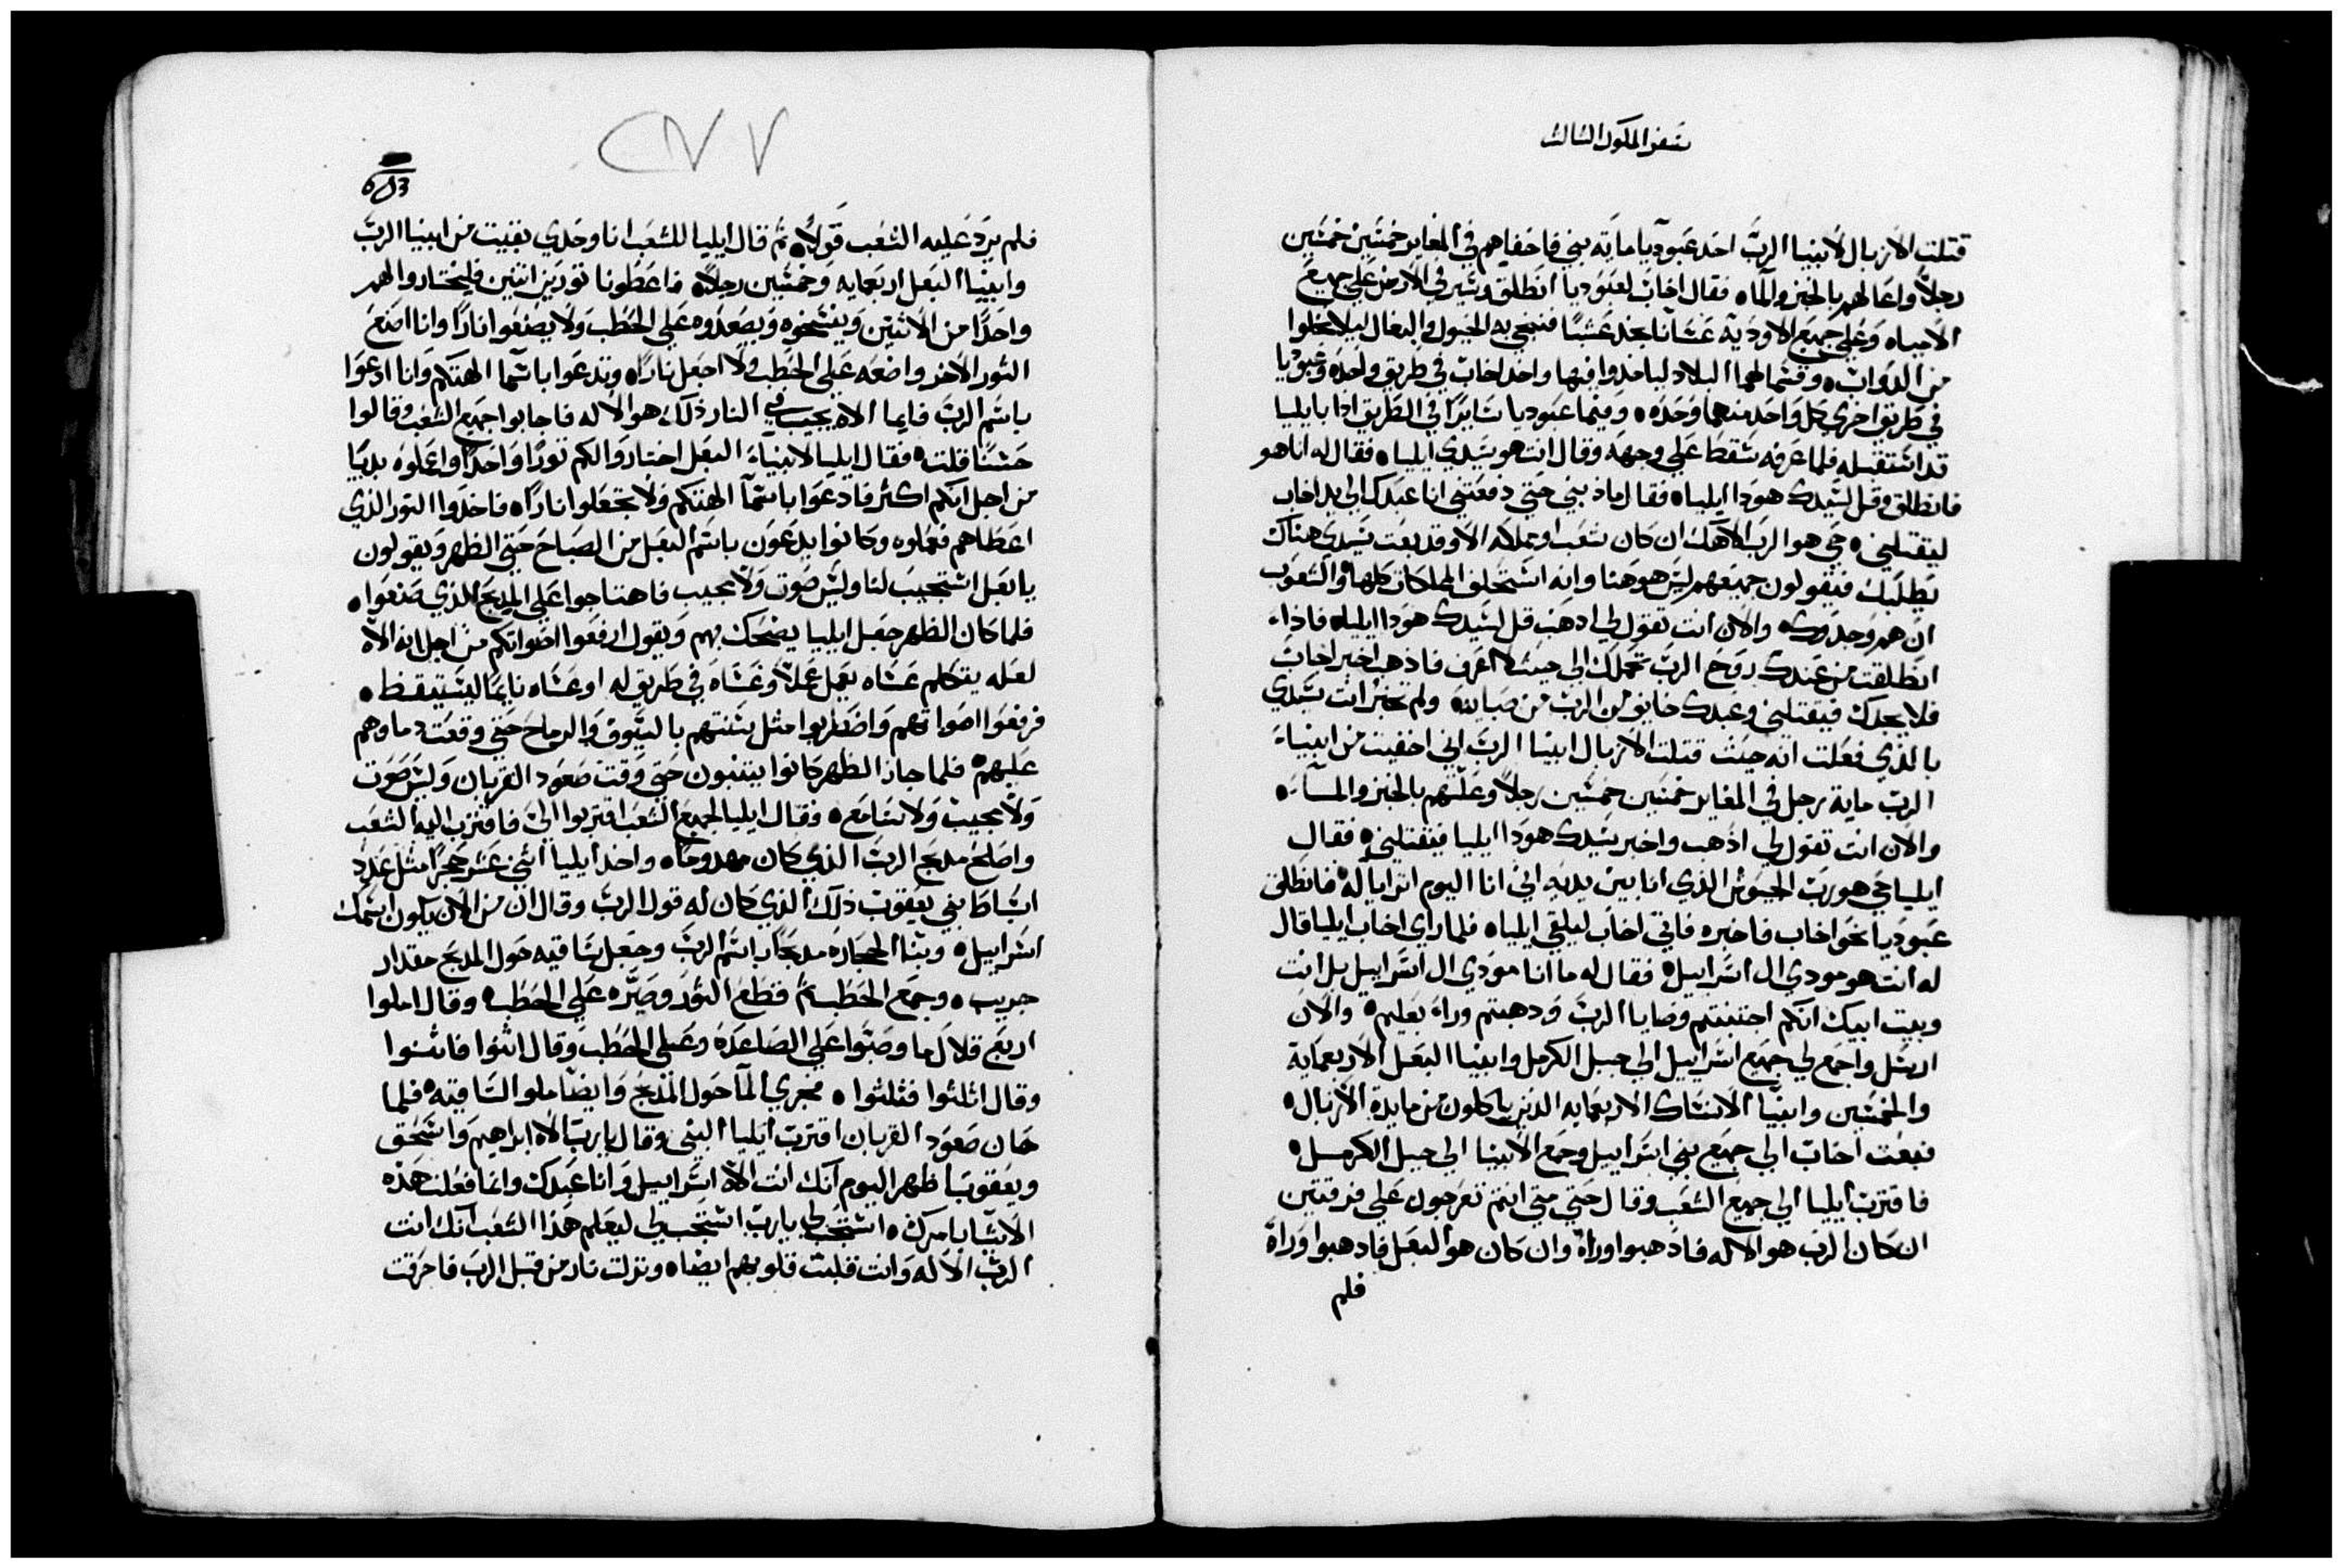 سفر الملوك الثالث
قتلت الازبال لانبيا الرب اخد عبوديا ماية بني فاخفاهم في المغاير خمسين خمسين
رجلاً واعالهم بالخبز والماء فقال اخاب لعبوديا انطلق وسير في الارض علي جميع
الامياه وعلي جميع الاودية عسانا نجد عشبًا فننجي به الخيول والبغال ليلا نخلوا
من الدواب وقسما لهما البلاد لياخدوا فيها واخد اخاب في طريق واحده وعبوديا
في طريق اخري كل واحد منهما وحده وفيما عبوديا سايرًا في الطريق اذا بايليا
قد استقبله فلما عرفه سقط علي وجهه وقال انت هو سيدي ايليا فقال له انا هو
فانطلق وقل لسيدك هودا ايليا فقال ماذنبي حتي دفعتني انا عبدك الي يد اخاب
ليقتلني حي هو الرب الاهك ان كان شعب او مملكه الا وقد بعت سيدي هناك
يطلبك فيقولون جميعهم ليس هو هنا وانه استحلف المملكات كلها والشعوب
ان هم وجدوك والان انت تقول لي ادهب قل لسيدك هودا ايليا فاذا
انطلقت من عندك روح الرب تحملك الي حيث لا اعرف فاذهب اخبر اخاب
فلا يجدك فيقتلني وعبدك خايف من الرب من صبايه ولم تخبر انت سيدي
بالذي فعلت انه حيث قتلت الازبال انبيا الرب اني اخفيت من انبياء
الرب ماية رجل في المغاير خمسين خمسين رجلاً وعلتهم بالخبز والماء
والان انت تقول لي اذهب واخبر سيدك هودا ايليا فيقتلني فقال
ايليا حي هو رب الجيوش الذي انا بين يديه اني انا اليوم اترايا له فانطلق
عبوديا نحو اخاب فاخبره فاتي اخاب ليلقي ايليا فلما راي اخاب ايليا قال
له انت هو مودي ال اسراييل فقال له ما انا مودي ال اسراييل بل انت
وبيت ابيك انكم اجتنبتم وصايا الرب ودهبتم وراء بعليم والان
ارسل واجمع لي جميع اسراييل الي جبل الكرمل وانبيا البعل الاربعماية
والخمسين وانبيا الانساك الاربعمايه الذين ياكلون من مايدة الازبال
فبعت اخاب الي جميع بني اسراييل وجمع الانبيا الي جبل الكرمل
فاقترب ايليا الي جميع الشعب وقال حتي متي انتم تعرجون علي فرقتين
ان كان الرب هو الاله فادهبوا وراه وان كان هو البعل فادهبوا وراة
فلم
٢٧٧
فلم يرد عليه الشعب قولا ثم قال ايليا للشعب انا وحدي بقيت من انبيا الرب
وانبيا البعل اربعمايه وخمسين رجلاً فاعطونا تورين اتنين فليختاروا لهم
واحدًا من الاثنين وينسخوه ويصعدوه علي الحطب ولا يصنعوا نارًا وانا اصنع
التور الاخر واضعه علي الحطب ولا اجعل نارا وتدعوا باسما الهتكم وانا ادعوا
باسم الرب فايما الاه يجيب في النار ذلك هو الاله فاجابوا جميع الشعب وقالوا
حسنًا قلت فقال ايليا لانبياء البعل اختاروا لكم تورًا واحدًا واعملوه بديا
من اجل انكم اكثر فادعوا باسما الهتكم ولا تجعلوا نارًا فاخدوا التور الذي
اعطاهم فعملوه وكانوا يدعون باسم البعل من الصباح حتي الظهر ويقولون
يا بعل استجيب لنا وليس صوت ولا مجيب فاهتاجوا علي المدبح الذي صنعوا
فلما كان الظهر جعل ايليا يضحك بهم ويقول ارفعوا اصواتكم من اجل انه الاه
لعله يتكلم عساه يعمل عملاً وعساه في طريق له او عساه نايمًا ليستيقظ
فرفعوا اصواتهم واضطربوا مثل سنتهم بالسيوف والرماح حتي وقعت دماوهم
عليهم فلما جاز الظهر كانوا يتنبون حتي وقت صعود القربان وليس صوت
ولا مجيب ولا سامع فقال ايليا لجميع الشعب اقتربوا الي فاقترب اليه الشعب
واصلح مدبح الرب الذي كان مهدومًا واخد ايليا اثني عشر حجرًا مثل عدد
اسباط بني يعقوب ذلك الذي كان له قول الرب وقال ان من الان يكون اسمك
اسراييل وبنا الحجاره مدبحًا باسم الرب وجعل ساقيه حول المدبح مقدار
جريب وجمع الحطب ثم قطع التور وصيره علي الحطب وقال املوا
اربع قلال ما وصبوا علي الصاعده وعلي الحطب وقال اثنوا فاثنوا
وقال اثلثوا فثلثوا فجري الما حول المدبح وايضًا ملوا الساقيه فلما
حان صعود القربان اقترب ايليا النبي وقال يا رب الاه ابراهيم واسحق
ويعقوب اظهر اليوم انك انت الاه اسراييل وانا عبدك وانما فعلت هذه
الاشيا بامرك استجب لي يا رب استجب لي ليعلم هذا الشعب انك انت
الرب الاله وانت قلبت قلوبهم ايضا ونزلت نار من قبل الرب فاحرقت